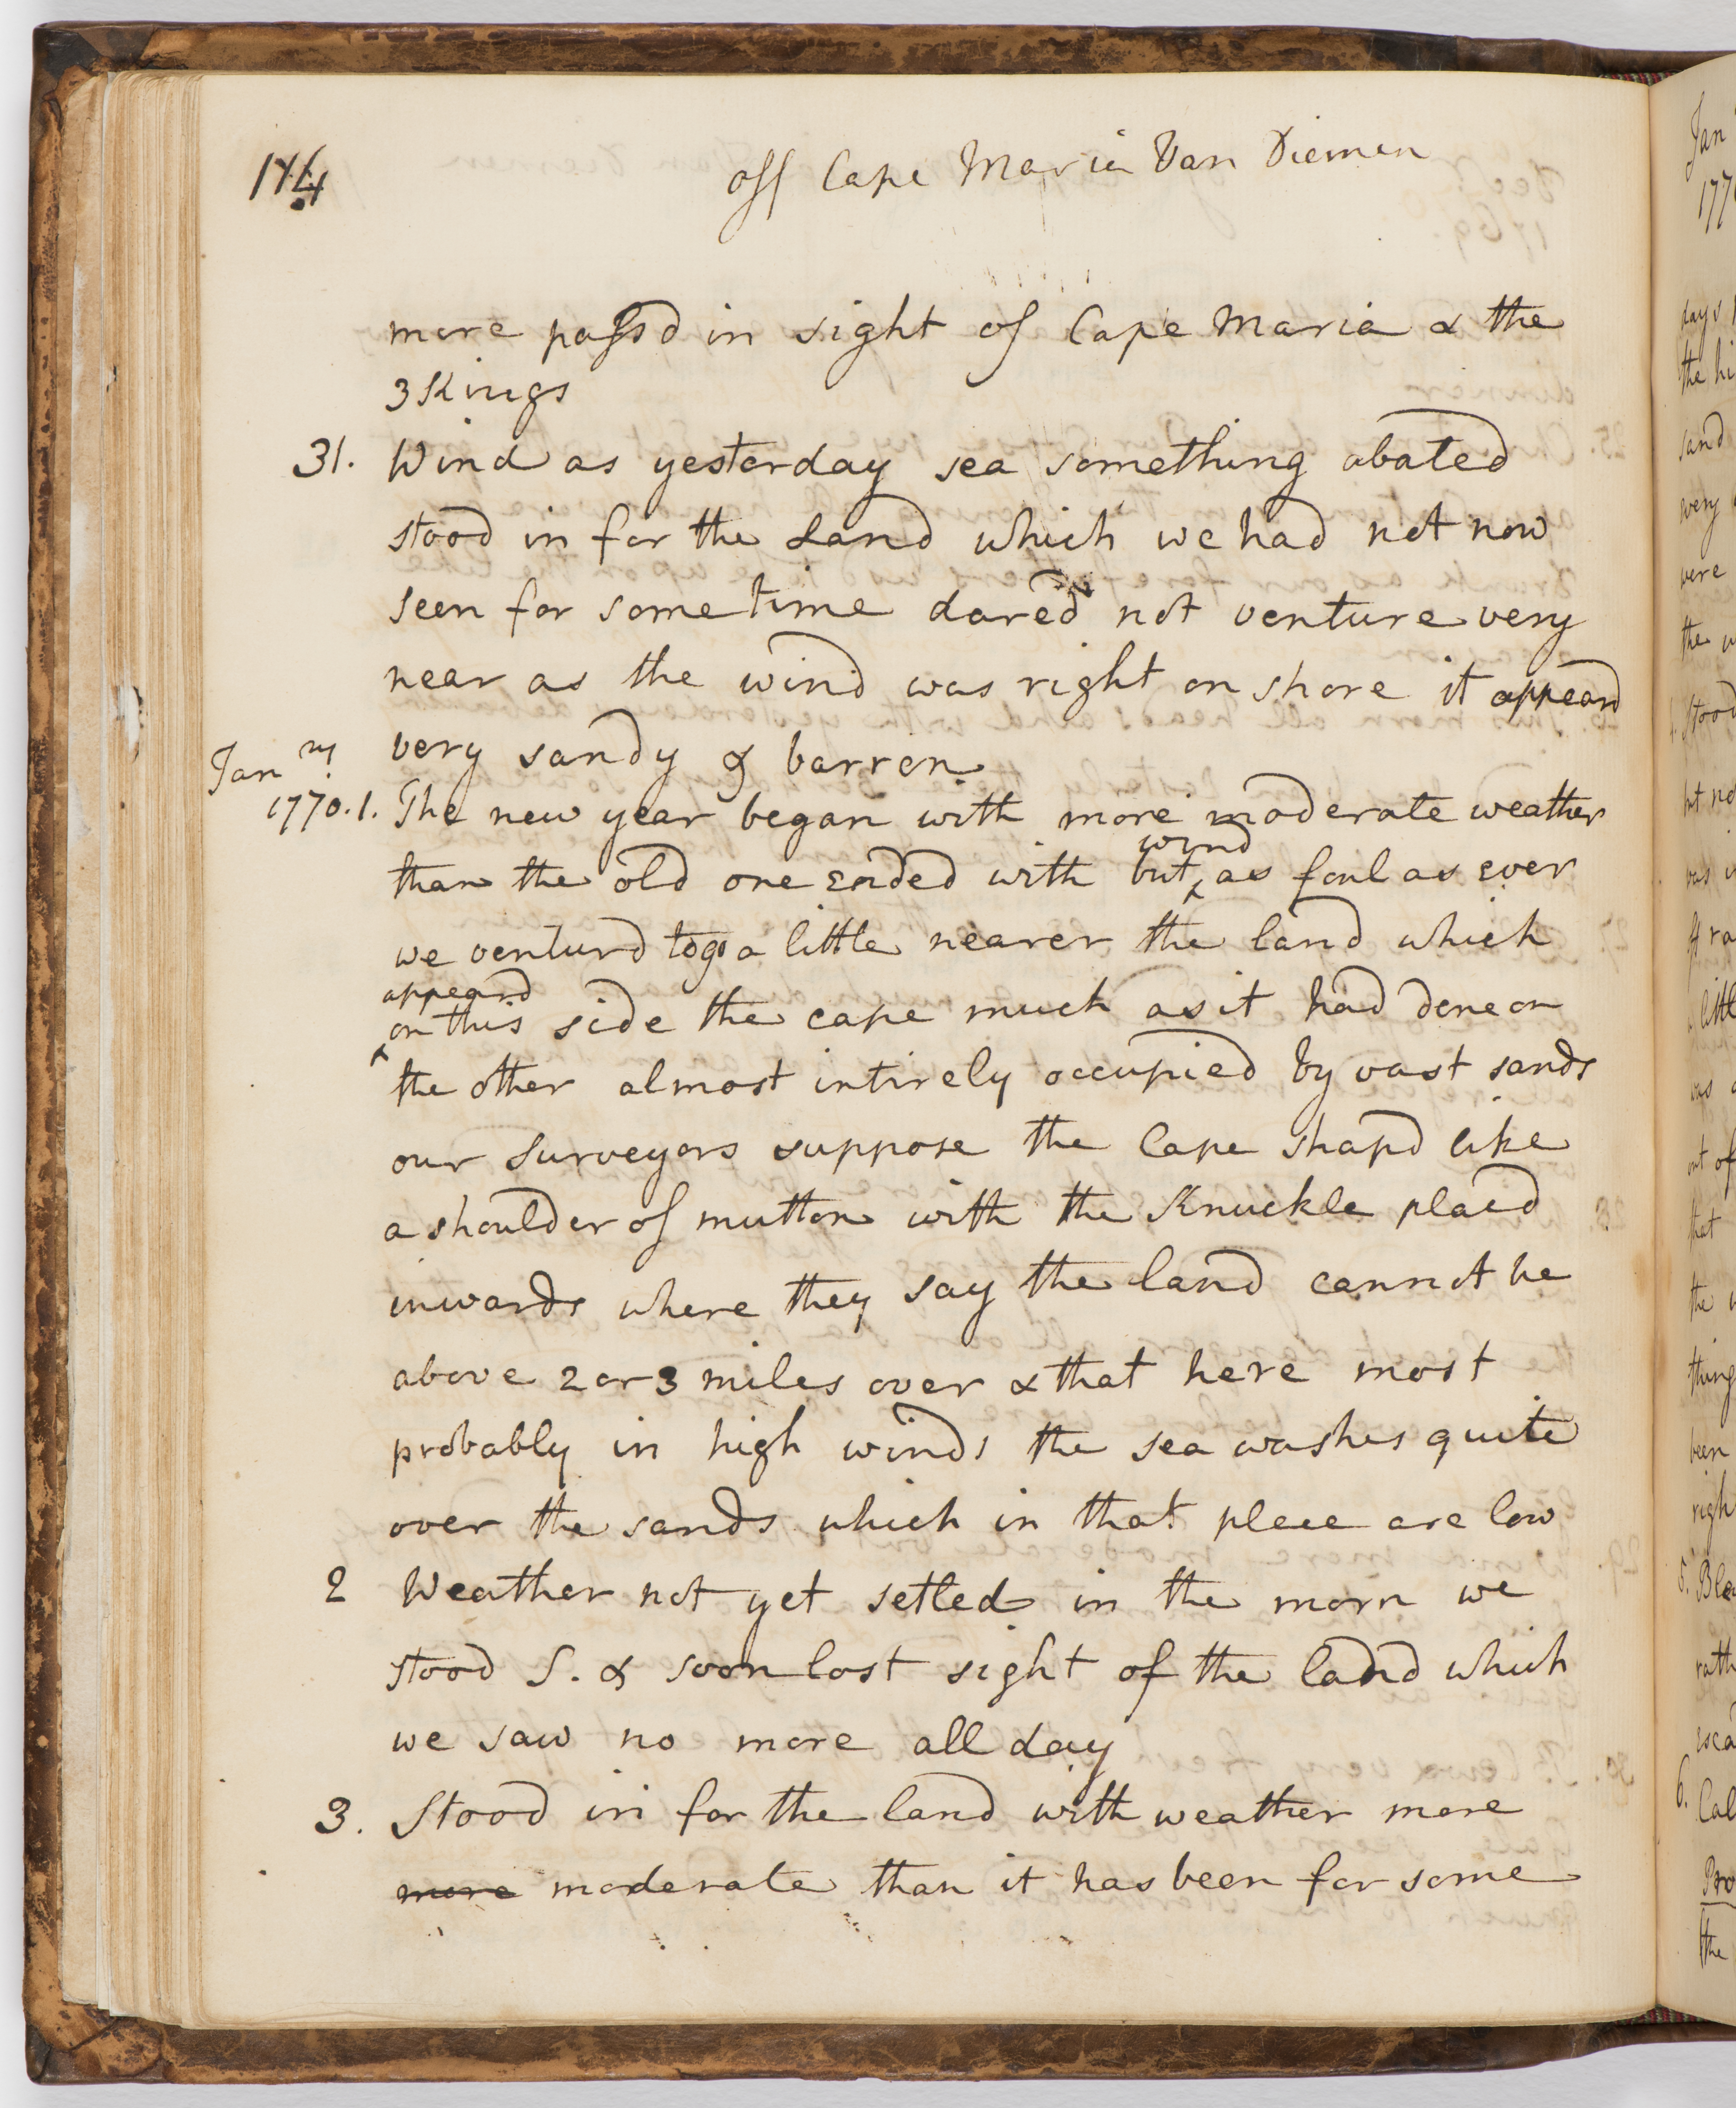 174
off Cape Maria Van Diemen
more passd in sight of Cape Maria & the
3 Kings
31. Wind as yesterday sea something abated
stood in for the Land which we had not now
seen for some time dared not venture very
near as the wind was right on shore it appeard
very sandy & barren.
Janry
1770. 1. The new year began with more moderate weather
wind
than the old one ended with but ‸ as foul as ever
we venturd to go a little nearer the land which
appeard
‸ on this side the cape much as it had done on
the other almost intirely occupied by vast sands
our Surveyors suppose the Cape shapd like
a shoulder of mutton with the Knuckle placd
inwards where they say the land cannot be
above 2 or 3 miles over & that here most
probably in high winds the sea washes quite
over the sands which in that place are low
2 Weather not yet setled in the morn we
stood S. & soon lost sight of the land which
we saw no more all day
3. Stood in for the land with weather more
more moderate than it has been for some
Jan
177
days
the hi
sand
very
were
the
stood
but no
was
of ra
a littl
was
out of
that
the
thing
been
righ
5. Blo
rath
esca
6. Cal
Pro
the